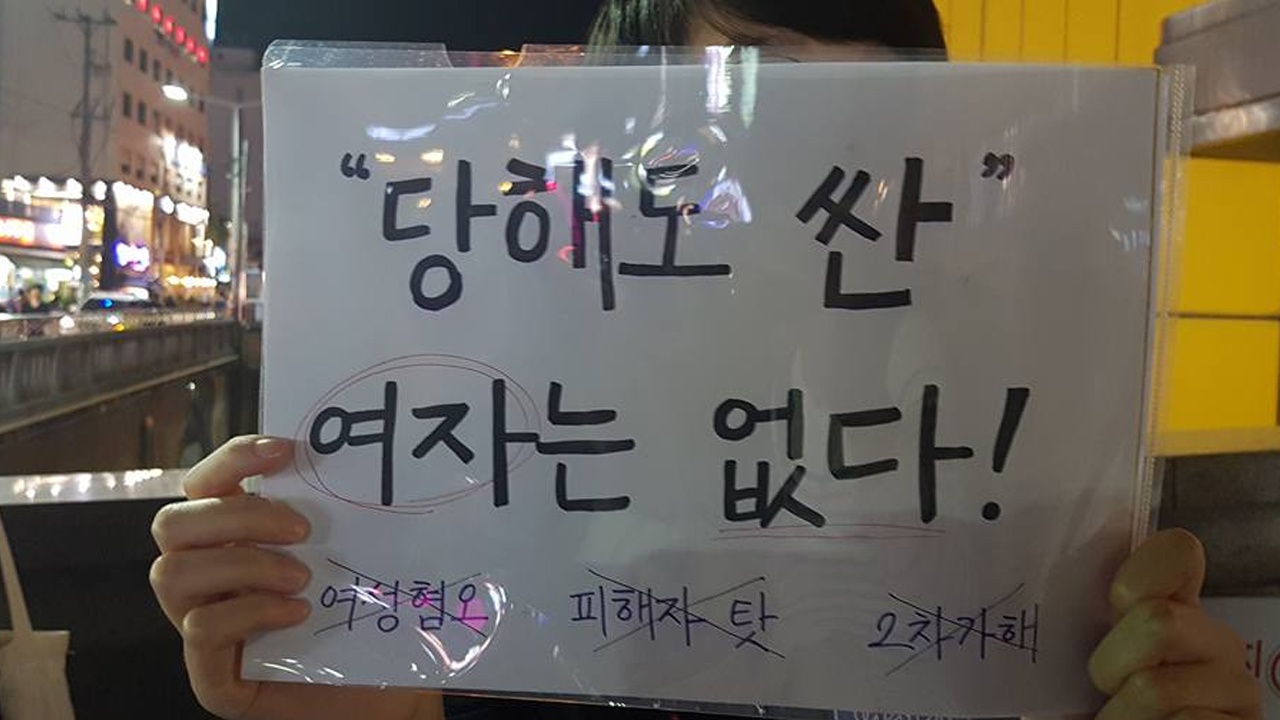 “당해도 싼”
여자는 없다!
여성혐오 피해자 탓 2차가해